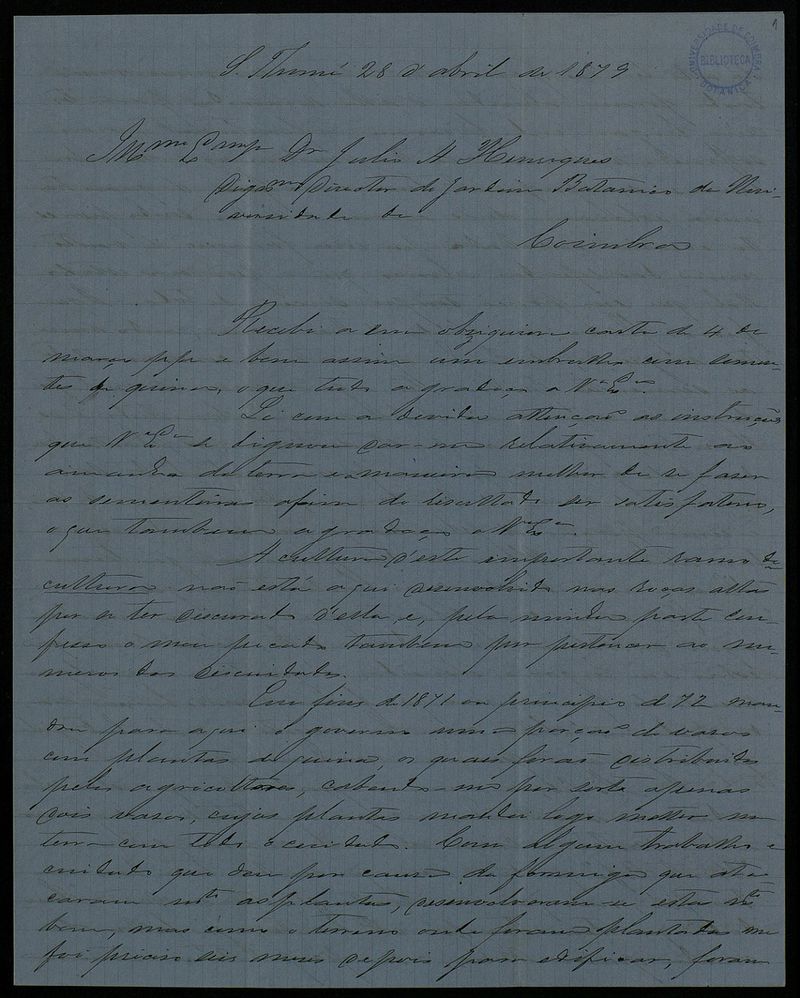 1
UNIVERSIDADE DE COIMBRA
BIBLIOTECA
BOTANICA
S. Thomé 28 d'abril de 1879
Illmo Exmo Dr Julio A Henriques
Digmo Director do Jardim Botanico da Uni-
versidade de
Coimbra
Recebi a sua obzequiosa carta de 4 de
março ppo e bem assim um embrulho com semen-
tes de quina, o que tudo agradeço a Va Exa.
Li com a devida attenção as instrucções
que Va Exa se dignou dar-me relativamente ao
amanho da terra e maneira melhor de se fazer
as sementeiras afim do resultado ser satisfatorio,
o que tambem agradeço a Va Exa.
A cultura d'este importante ramo de
cultura não está aqui desenvolvido nas roças altas
por se ter descurado d'ella e, pela minha parte con-
fesso o meu peccado tambem por pertencer ao nu-
mero dos descuidados.
Em fins de 1871 ou principio de 72 man-
dou para aqui o governo uma porção de vasos
com plantas de quina, os quaes forão distribuidos
pelos agricultores, cabendo-me por sorte apenas
dois vasos, cujas plantas mandei logo metter na
terra com todo o cuidado. Com algum trabalho e
cuidado que deu por causa da formiga que ata-
caram mto as plantas, desenvolveram-se estas mto
bem, mas como o terreno onde foram plantadas me
foi preciso seis meses depois para edificar, foram